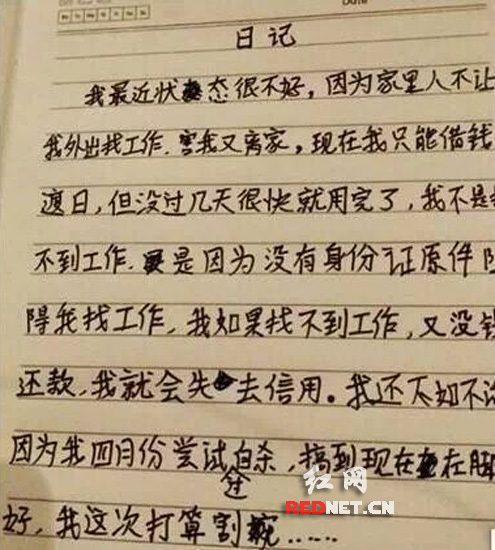 Date
日记
我最近状态很不好，因为家里人不让
我外出找工作.害我又离家，现在我只能借钱
渡日，但没过几天很快就用完了，我不是
不到工作.是因为没有身份证原件
碍我找工作，我如果找不到工作，又没钱
还款，我就会失去信用。我还不如不
因为我四月份尝试过自杀，搞到现在在脚
好，我这次打算割腕……
红网
REDNET.CN